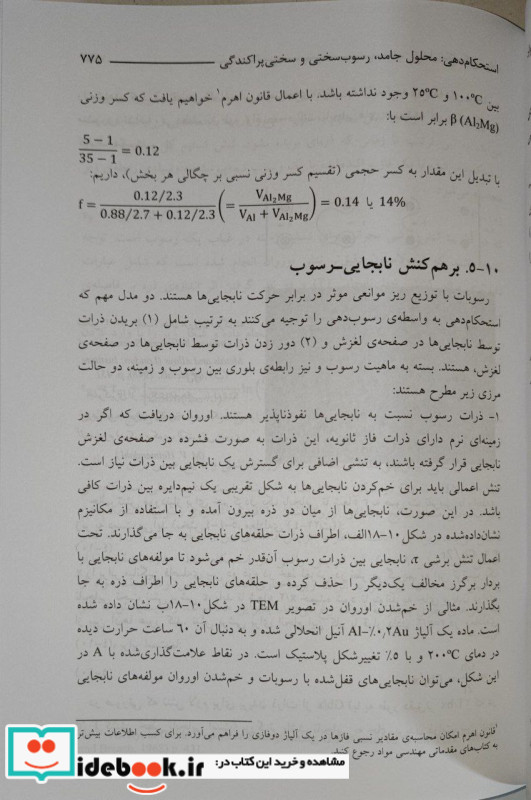 استحکام‌دهی: محلول جامد، رسوب‌سختی و سختی‌پراکندگی ــــــــــــ ۷۷۵
بین ۱۰۰°C و ۲۵°C وجود نداشته باشد. با اعمال قانون اهرم¹ خواهیم یافت که کسر وزنی
β (Al₂Mg) برابر است با:
5 − 1 / 35 − 1 = 0.12
با تبدیل این مقدار به کسر حجمی (تقسیم کسر وزنی نسبی بر چگالی هر بخش)، داریم:
f = 0.12/2.3 / 0.88/2.7 + 0.12/2.3 (= V_Al₂Mg / V_Al + V_Al₂Mg) = 0.14 یا 14%
۱۰-۵. برهم‌کنش نابجایی-رسوب
رسوبات با توزیع ریز موانعی موثر در برابر حرکت نابجایی‌ها هستند. دو مدل مهم که
استحکام‌دهی به واسطه‌ی رسوب‌دهی را توجیه می‌کنند به ترتیب شامل (۱) بریدن ذرات
توسط نابجایی‌ها در صفحه‌ی لغزش و (۲) دور زدن ذرات توسط نابجایی‌ها در صفحه‌ی
لغزش، هستند. بسته به ماهیت رسوب و نیز رابطه‌ی بلوری بین رسوب و زمینه، دو حالت
مرزی زیر مطرح هستند:
۱- ذرات رسوب نسبت به نابجایی‌ها نفوذناپذیر هستند. اوروان دریافت که اگر در
زمینه‌ای نرم دارای ذرات فاز ثانویه، این ذرات به صورت فشرده در صفحه‌ی لغزش
نابجایی قرار گرفته باشند، به تنشی اضافی برای گسترش یک نابجایی بین ذرات نیاز است.
تنش اعمالی باید برای خم‌کردن نابجایی‌ها به شکل تقریبی یک نیم‌دایره بین ذرات کافی
باشد. در این صورت، نابجایی‌ها از میان دو ذره بیرون آمده و با استفاده از مکانیزم
نشان‌داده‌شده در شکل۱۰-۱۸الف، اطراف ذرات حلقه‌های نابجایی به جا می‌گذارند. تحت
اعمال تنش برشی τ، نابجایی بین ذرات رسوب آن‌قدر خم می‌شود تا مولفه‌های نابجایی با
بردار برگرز مخالف یک‌دیگر را حذف کرده و حلقه‌های نابجایی را اطراف ذره به جا
بگذارند. مثالی از خم‌شدن اوروان در تصویر TEM در شکل۱۰-۱۸ب نشان داده شده
است. ماده یک آلیاژ Al-٪۰٫۲Au آنیل انحلالی شده و به دنبال آن ۶۰ ساعت حرارت دیده
در دمای ۲۰۰°C و با ۵٪ تغییرشکل پلاستیک است. در نقاط علامت‌گذاری‌شده با A در
این شکل، می‌توان نابجایی‌های قفل‌شده با رسوبات و خم‌شدن اوروان مولفه‌های نابجایی
¹قانون اهرم امکان محاسبه‌ی مقادیر نسبی فازها در یک آلیاژ دوفازی را فراهم می‌آورد. برای کسب اطلاعات بیش‌تر
به کتاب‌های مقدماتی مهندسی مواد رجوع کنید.
مشاهده و خرید این کتاب در:
idebook.ir